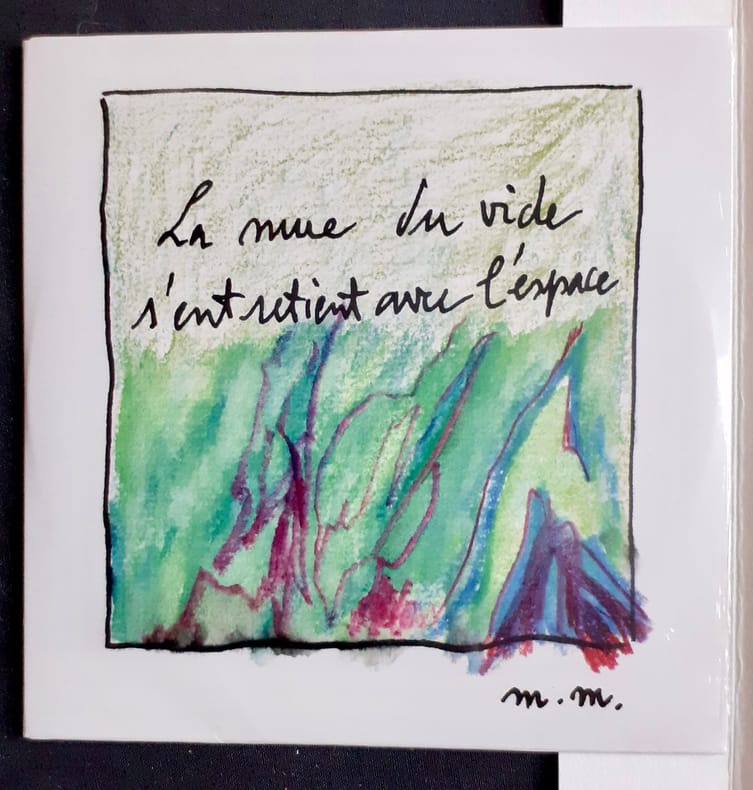 La mue du vide
s'entretient avec l'espace
m.m.